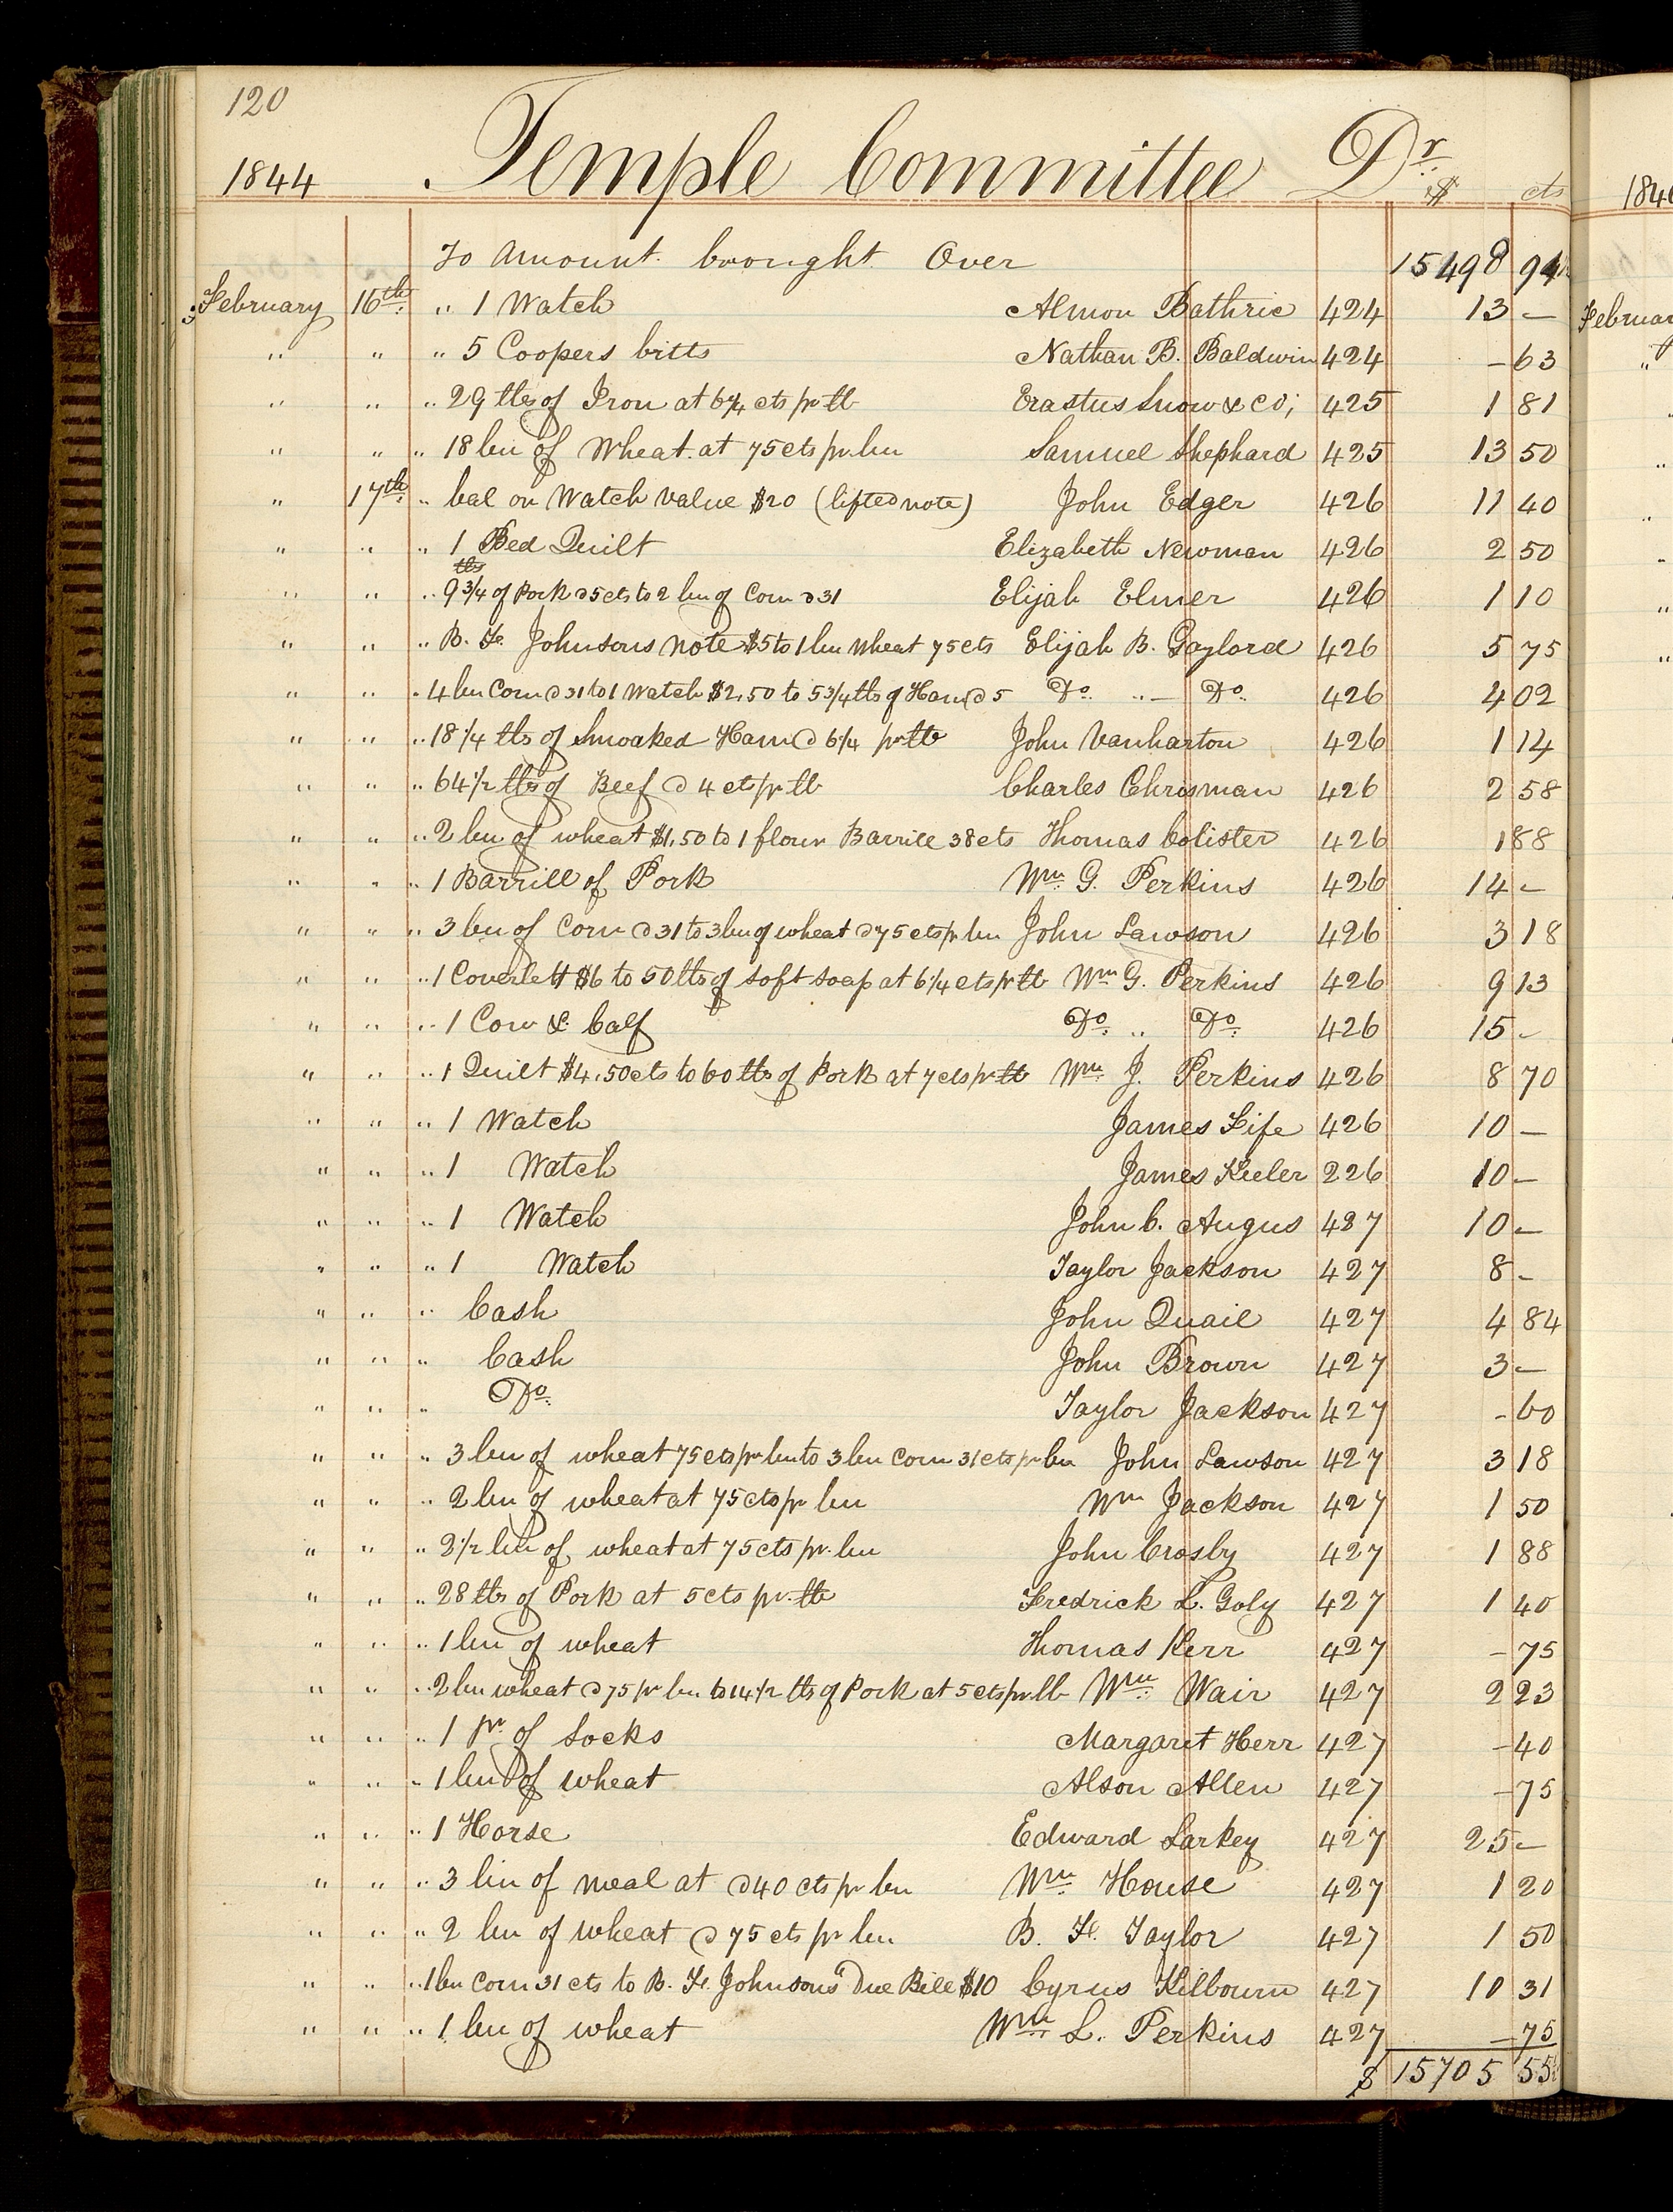 120
1844 Temple Committee Dr.
$ cts
To Amount brought Over 15498 94
February 16th " 1 Watch Almon Bathric 424 13 —
" " " 5 Coopers bitts Nathan B. Baldwin 424 — 63
" " " 29 lbs of Iron at 6¼ cts pr lb Erastus Snow & Co; 425 1 81
" " " 18 bu of Wheat at 75 cts pr bu Samuel Shephard 425 13 50
" 17th " bal on Watch value $20 (lifted note) John Edger 426 11 40
" " " 1 Bed Quilt Elizabeth Newman 426 2 50
lbs
" " " 9 3/4 of Pork @ 5 cts to 2 bu of Corn @ 31 Elijah Elmer 426 1 10
" " " B. F. Johnsons note $5 to 1 bu Wheat 75 cts Elijah B. Gaylord 426 5 75
" " " 4 bu Corn @ 31 to 1 Watch $2,50 to 5 3/4 lbs of Ham @ 5 Do. " — Do. 426 4 02
" " " 18 1/4 lbs of Smoaked Ham @ 6 1/4 pr lb John Vanharton 426 1 14
" " " 64 1/2 lbs of Beef @ 4 cts pr lb Charles Chrisman 426 2 58
" " " 2 bu of wheat $1,50 to 1 flour Barrill 38 cts Thomas Colister 426 1 88
" " " 1 Barrill of Pork Wm G. Perkins 426 14 —
" " " 3 bu of Corn @ 31 to 3 bu of wheat @ 75 cts pr bu John Lawson 426 3 18
" " " 1 Coverlett $6 to 50 lbs of soft soap at 6 1/4 cts pr lb Wm G. Perkins 426 9 13
" " " 1 Cow & Calf Do. " Do. 426 15 —
" " " 1 Quilt $4,50 cts to 60 lbs of Pork at 7 cts pr lb Wm J. Perkins 426 8 70
" " " 1 Watch James Fife 426 10 —
" " " 1 Watch James Keeler 226 10 —
" " " 1 Watch John C. Angus 427 10 —
" " " 1 Watch Taylor Jackson 427 8 —
" " " Cash John Quail 427 4 84
" " " Cash John Brown 427 3 —
" " " Do. Taylor Jackson 427 — 60
" " " 3 bu of wheat 75 cts pr bu to 3 bu Corn 31 cts pr bu John Lawson 427 3 18
" " " 2 bu of wheat at 75 cts pr bu Wm Jackson 427 1 50
" " " 2 1/2 bu of wheat at 75 cts pr. bu John Crosby 427 1 88
" " " 28 lbs of Pork at 5 cts pr. lb Fredrick L. Goly 427 1 40
" " " 1 bu of wheat Thomas Kerr 427 — 75
" " " 2 bu wheat @ 75 pr bu to 14 1/2 lbs of Pork at 5 cts pr lb Wm Wair 427 2 23
" " " 1 pr of Socks Margaret Herr 427 — 40
" " " 1 bu of wheat Alson Allen 427 — 75
" " " 1 Horse Edward Larkey 427 25 —
" " " 3 bu of meal at @ 40 cts pr bu Wm House 427 1 20
" " " 2 bu of wheat @ 75 cts pr bu B. F. Taylor 427 1 50
" " " 1 bu Corn 31 cts to B. F. Johnsons" Due Bill $10 Cyrus Kilbourn 427 10 31
" " " 1 bu of wheat Wm L. Perkins 427 — 75
$ 15705 55